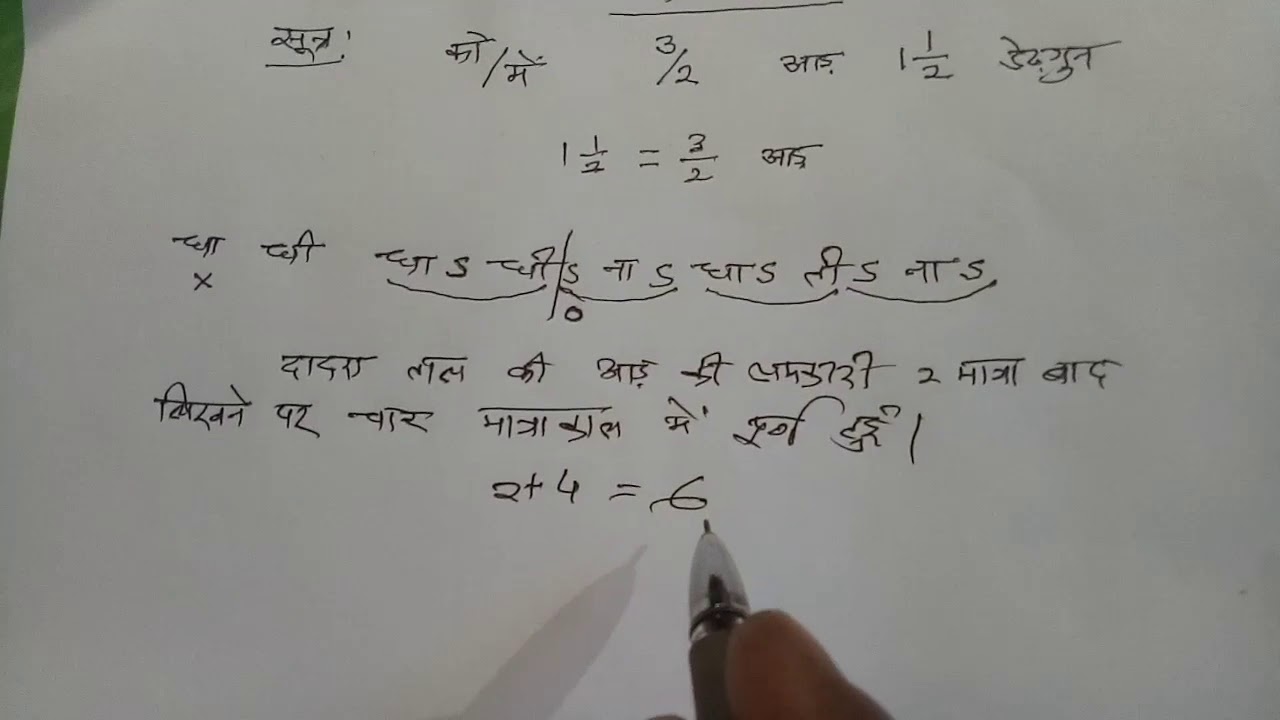 सूत्र: को/में 3/2 आड़ 1 1/2 डेढ़गुन
1 1/2 = 3/2 आड़
धा धी धा ऽ धी/ऽ ना ऽ धा ऽ ती ऽ ना ऽ
x 0
दादरा ताल की आड़ की लयकारी 2 मात्रा बाद
लिखने पर चार मात्राकाल में पूर्ण हुई।
2+4 = 6